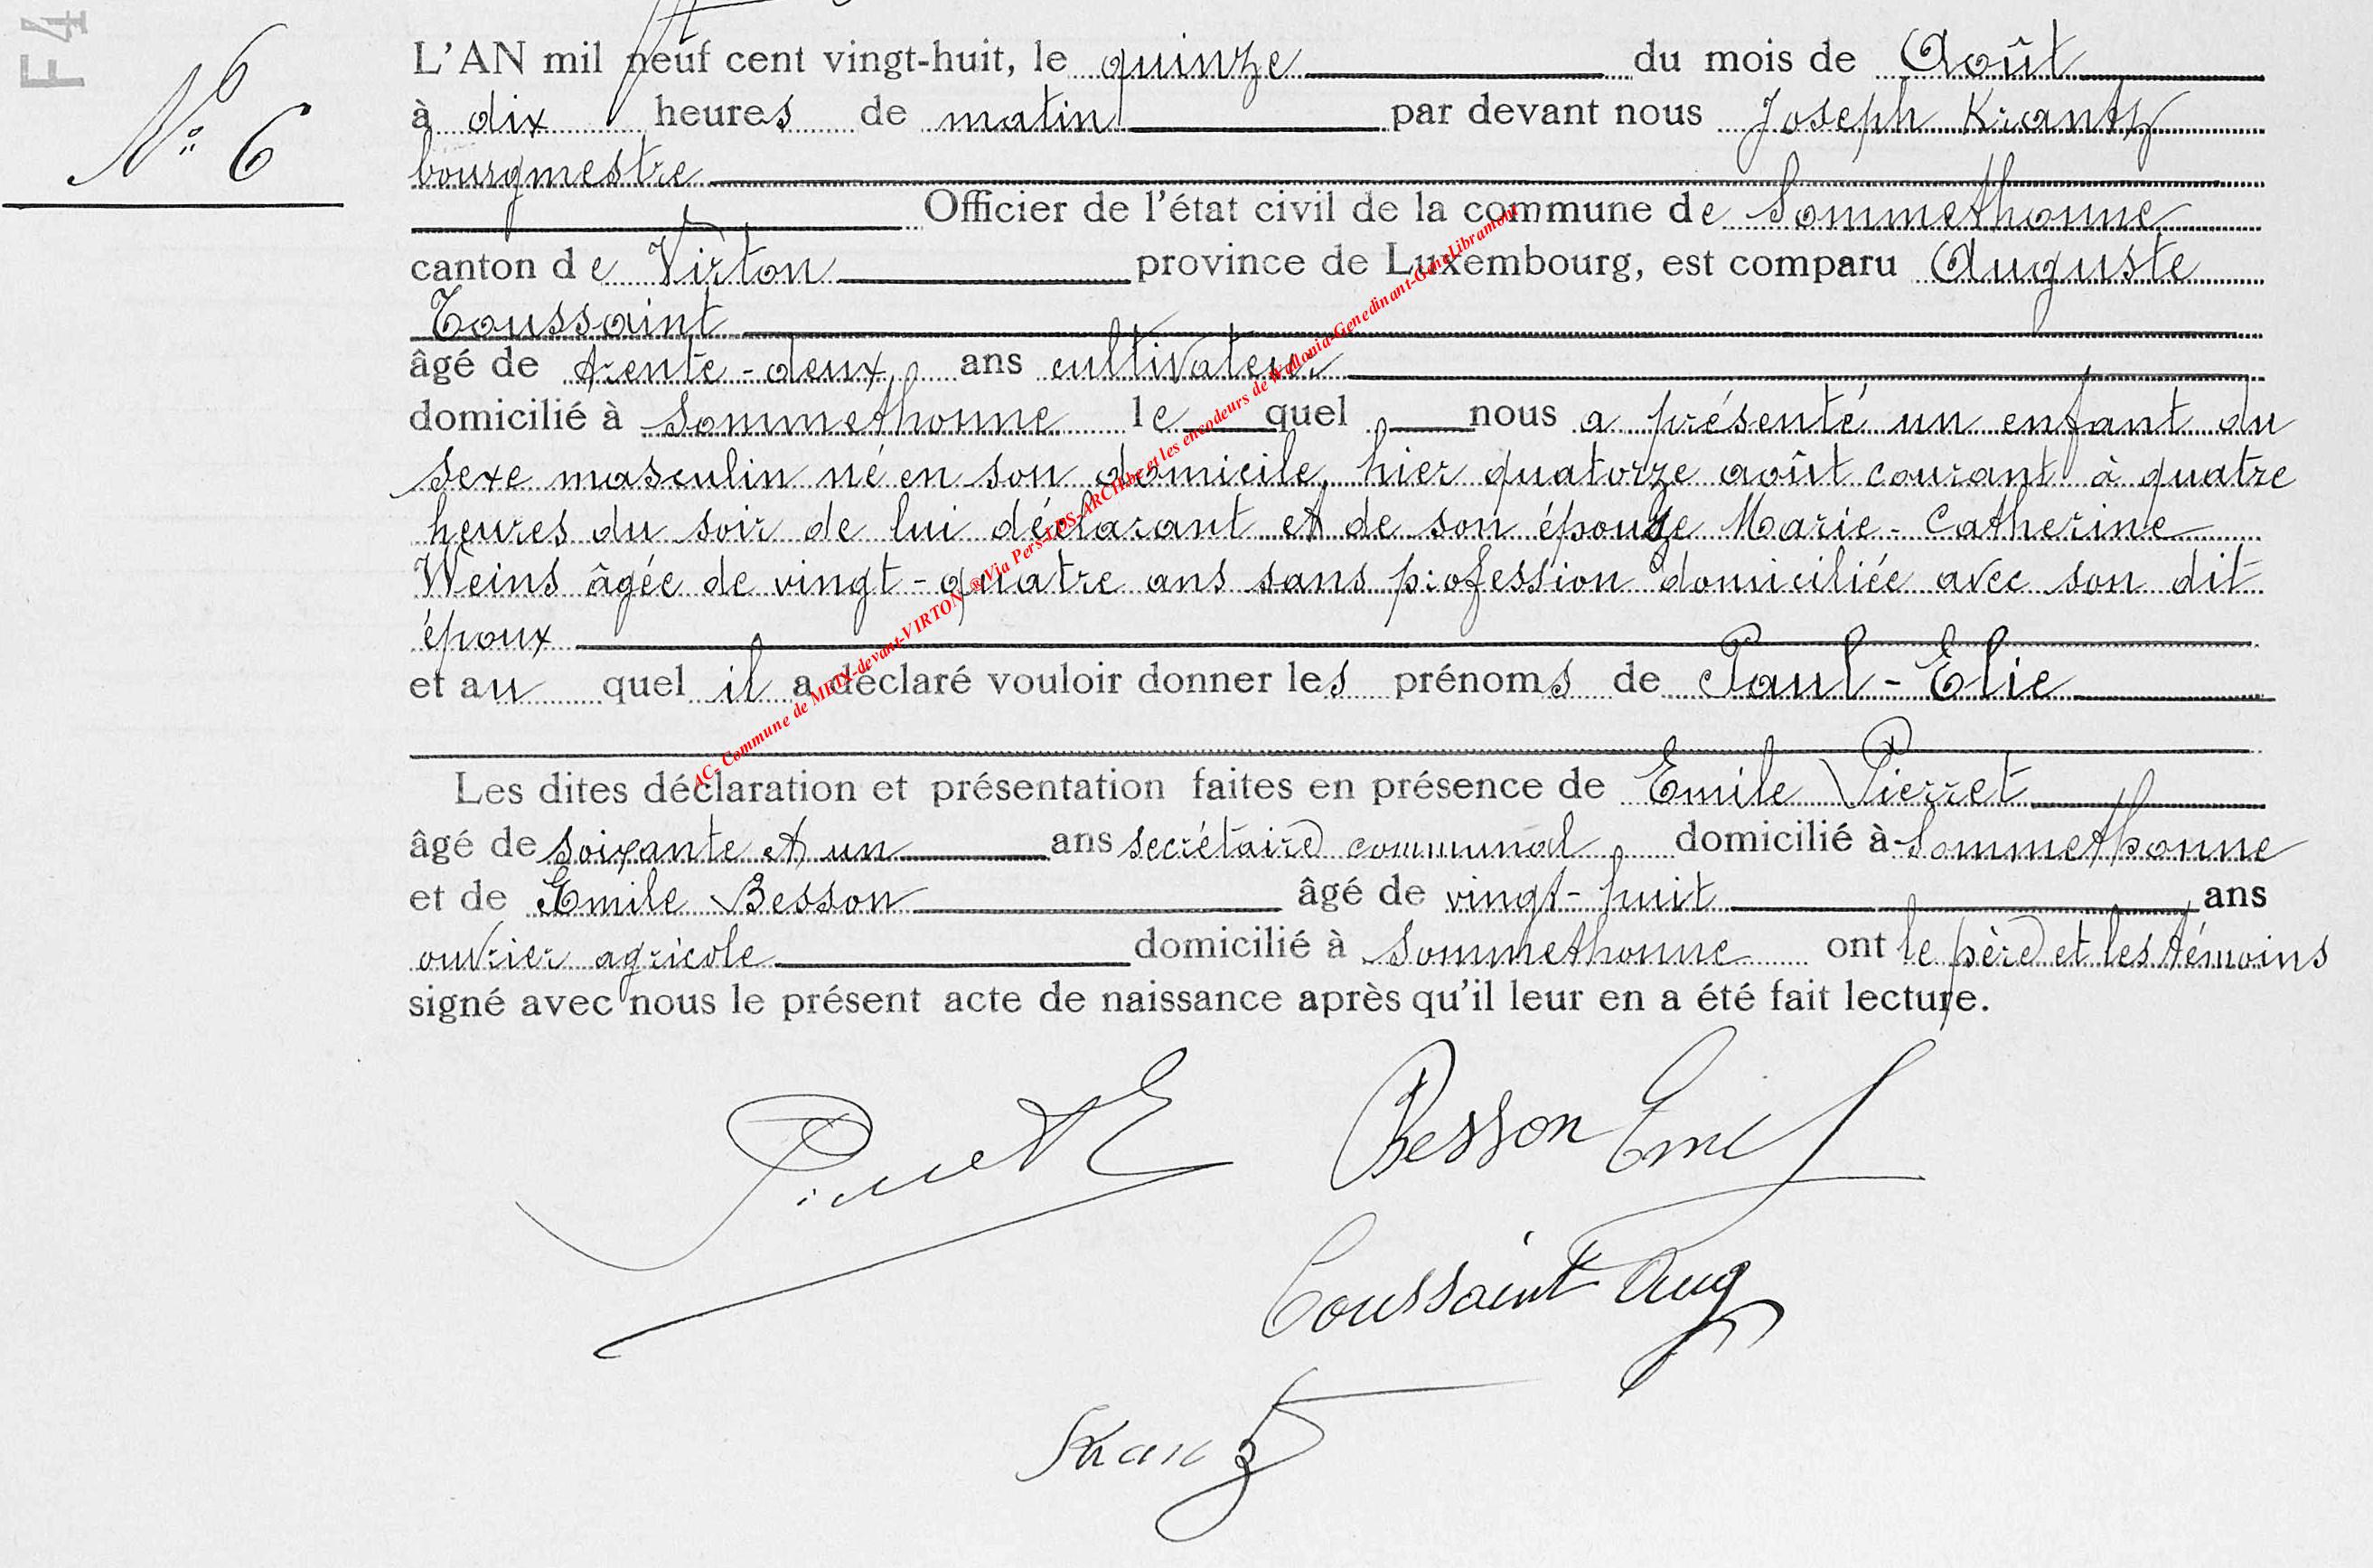 F4
N° 6
L'AN mil neuf cent vingt-huit, le quinze du mois de Août
à dix heures de matin par devant nous Joseph Krantz
bourgmestre
Officier de l'état civil de la commune de Sommethonne
canton de Virton province de Luxembourg, est comparu Auguste
Toussaint
âgé de trente-deux ans cultivateur
domicilié à Sommethonne lequel nous a présenté un enfant du
sexe masculin né en son domicile, hier quatorze août courant à quatre
heures du soir de lui déclarant et de son épouse Marie-Catherine
Weins âgée de vingt-quatre ans sans profession domiciliée avec son dit
époux
et auquel il a déclaré vouloir donner les prénoms de Paul-Elie
Les dites déclaration et présentation faites en présence de Emile Pierret
âgé de soixante et un ans secrétaire communal domicilié à Sommethonne
et de Emile Besson âgé de vingt-huit ans
ouvrier agricole domicilié à Sommethonne ont le père et les témoins
signé avec nous le présent acte de naissance après qu'il leur en a été fait lecture.
Pierret E
Besson Emil
Toussaint Aug
Krantz
AC- Commune de MEIX-devant-VIRTON ® Via Pers-LDS-ARCH.be et les encodeurs de Wallonia-Genedinant-GeneLibramont